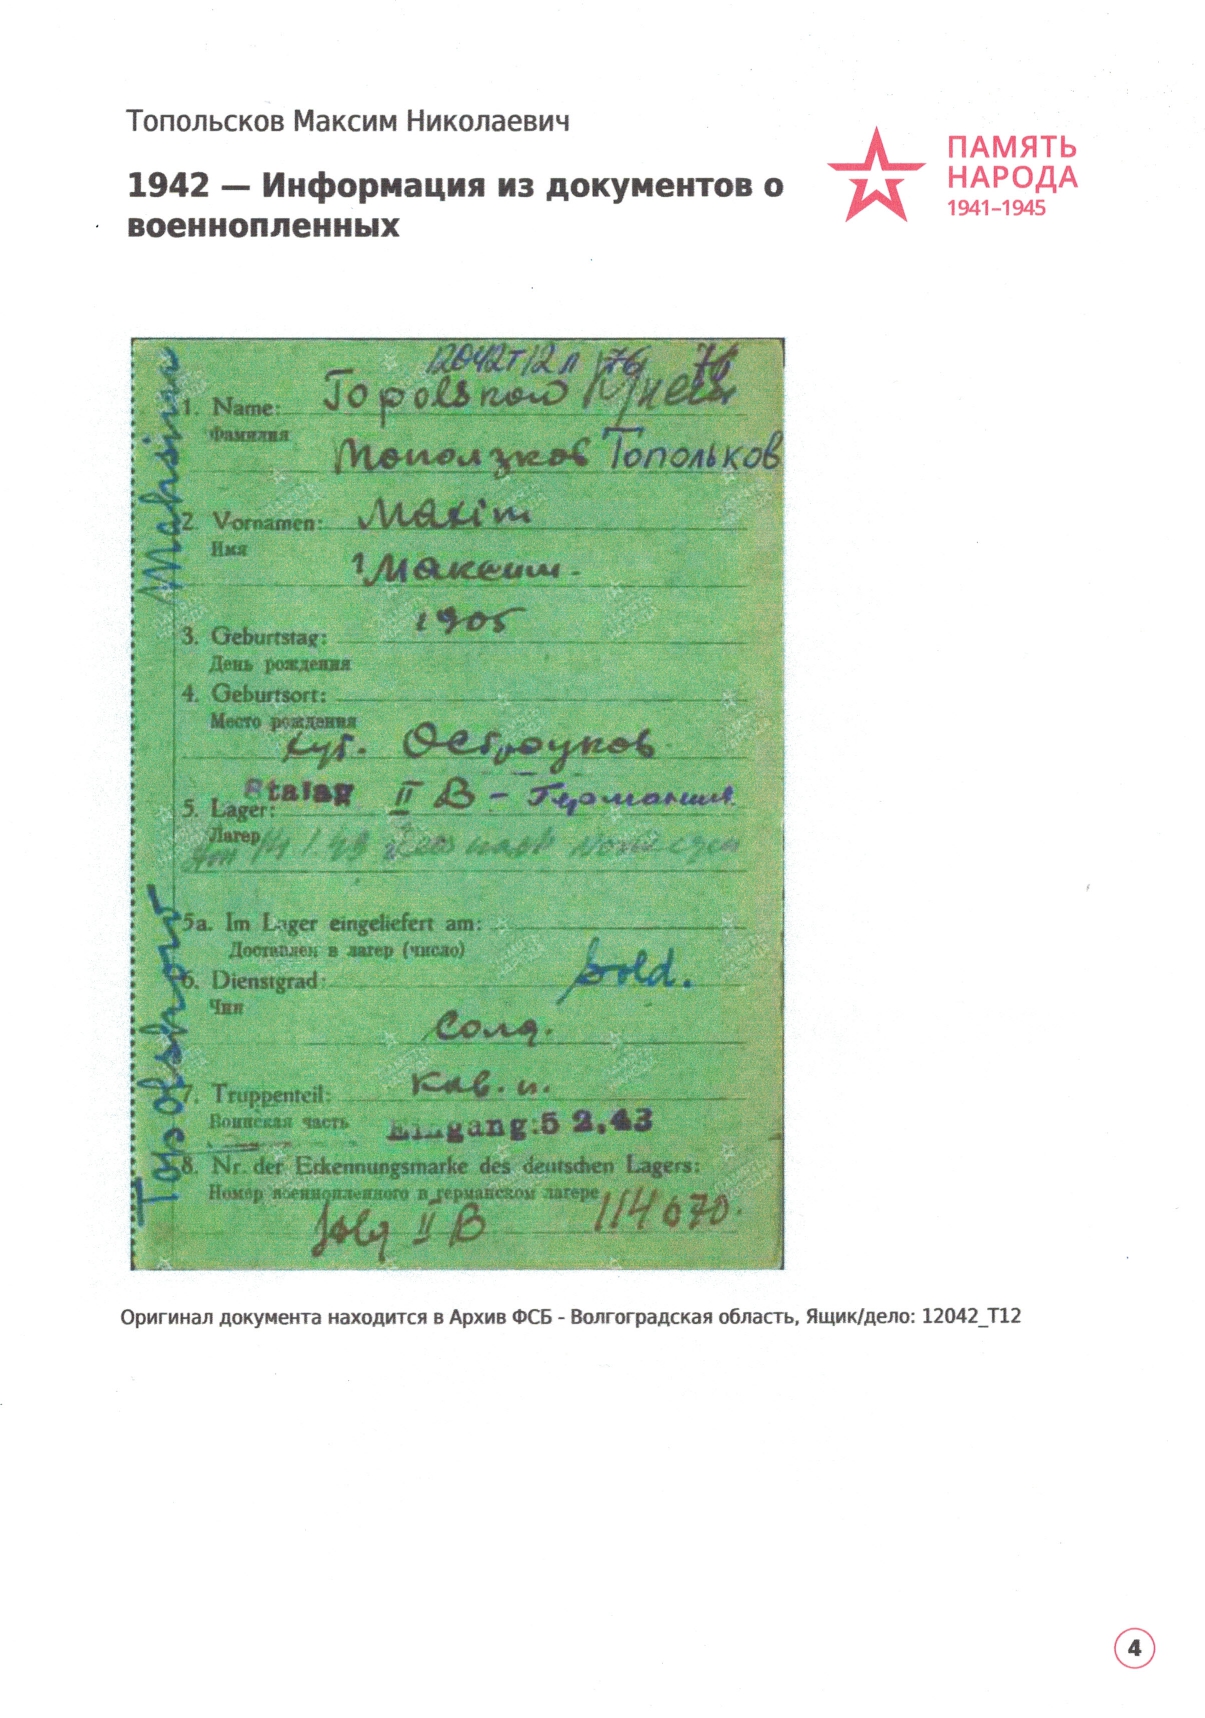 Топольсков Максим Николаевич
1942 — Информация из документов о
военнопленных
ПАМЯТЬ
НАРОДА
1941–1945
12042т12л 76
1. Name: Topolskow
Фамилия
Топольков
2. Vornamen: Maxim
Имя
Максим
3. Geburtstag: 1905
День рождения
4. Geburtsort:
Место рождения
хут. Остроухов
5. Lager: Stalag II B - Германия
Лагер
5a. Im Lager eingeliefert am:
Доставлен в лагер (число)
6. Dienstgrad: Sold.
Чин
Солд.
7. Truppenteil: Кав. п.
Воинская часть Eingang: 5 2.43
8. Nr. der Erkennungsmarke des deutschen Lagers:
Номер военнопленного в германском лагере
II B 114070.
Topolskow Maksim
Оригинал документа находится в Архив ФСБ - Волгоградская область, Ящик/дело: 12042_Т12
4